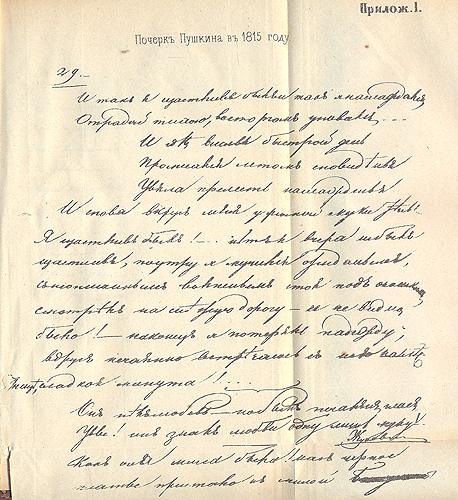 Прилож. I.
Почеркъ Пушкина въ 1815 году.
29.—
И такъ я щастливъ былъ, и такъ я наслаждался,
Отрадой тихою, восторгомъ упивался...
И гдѣ веселья быстрой день
Промчался лѣтомъ сновидѣнья
Увяла прелесть наслажденья
И снова вкругъ меня угрюмой скуки тѣнь!
Я щастливъ былъ!... нѣтъ, я вчера не былъ
щастливъ; поутру я мучился ожиданьемъ,
съ неописаннымъ волненьемъ стоя подъ окошкомъ,
смотрѣлъ на снѣжную дорогу — ее не видно
было! — наконецъ я потерялъ надежду;
вдругъ нечаянно встрѣчаюсь съ нею на лѣст
ницѣ, сладкая минута!...
Онъ пѣлъ любовь — но былъ печаленъ гласъ
Увы! онъ зналъ любви одну лишь муку!
Жуковскій
Какъ она мила была! какъ черное
платье пристало къ милой